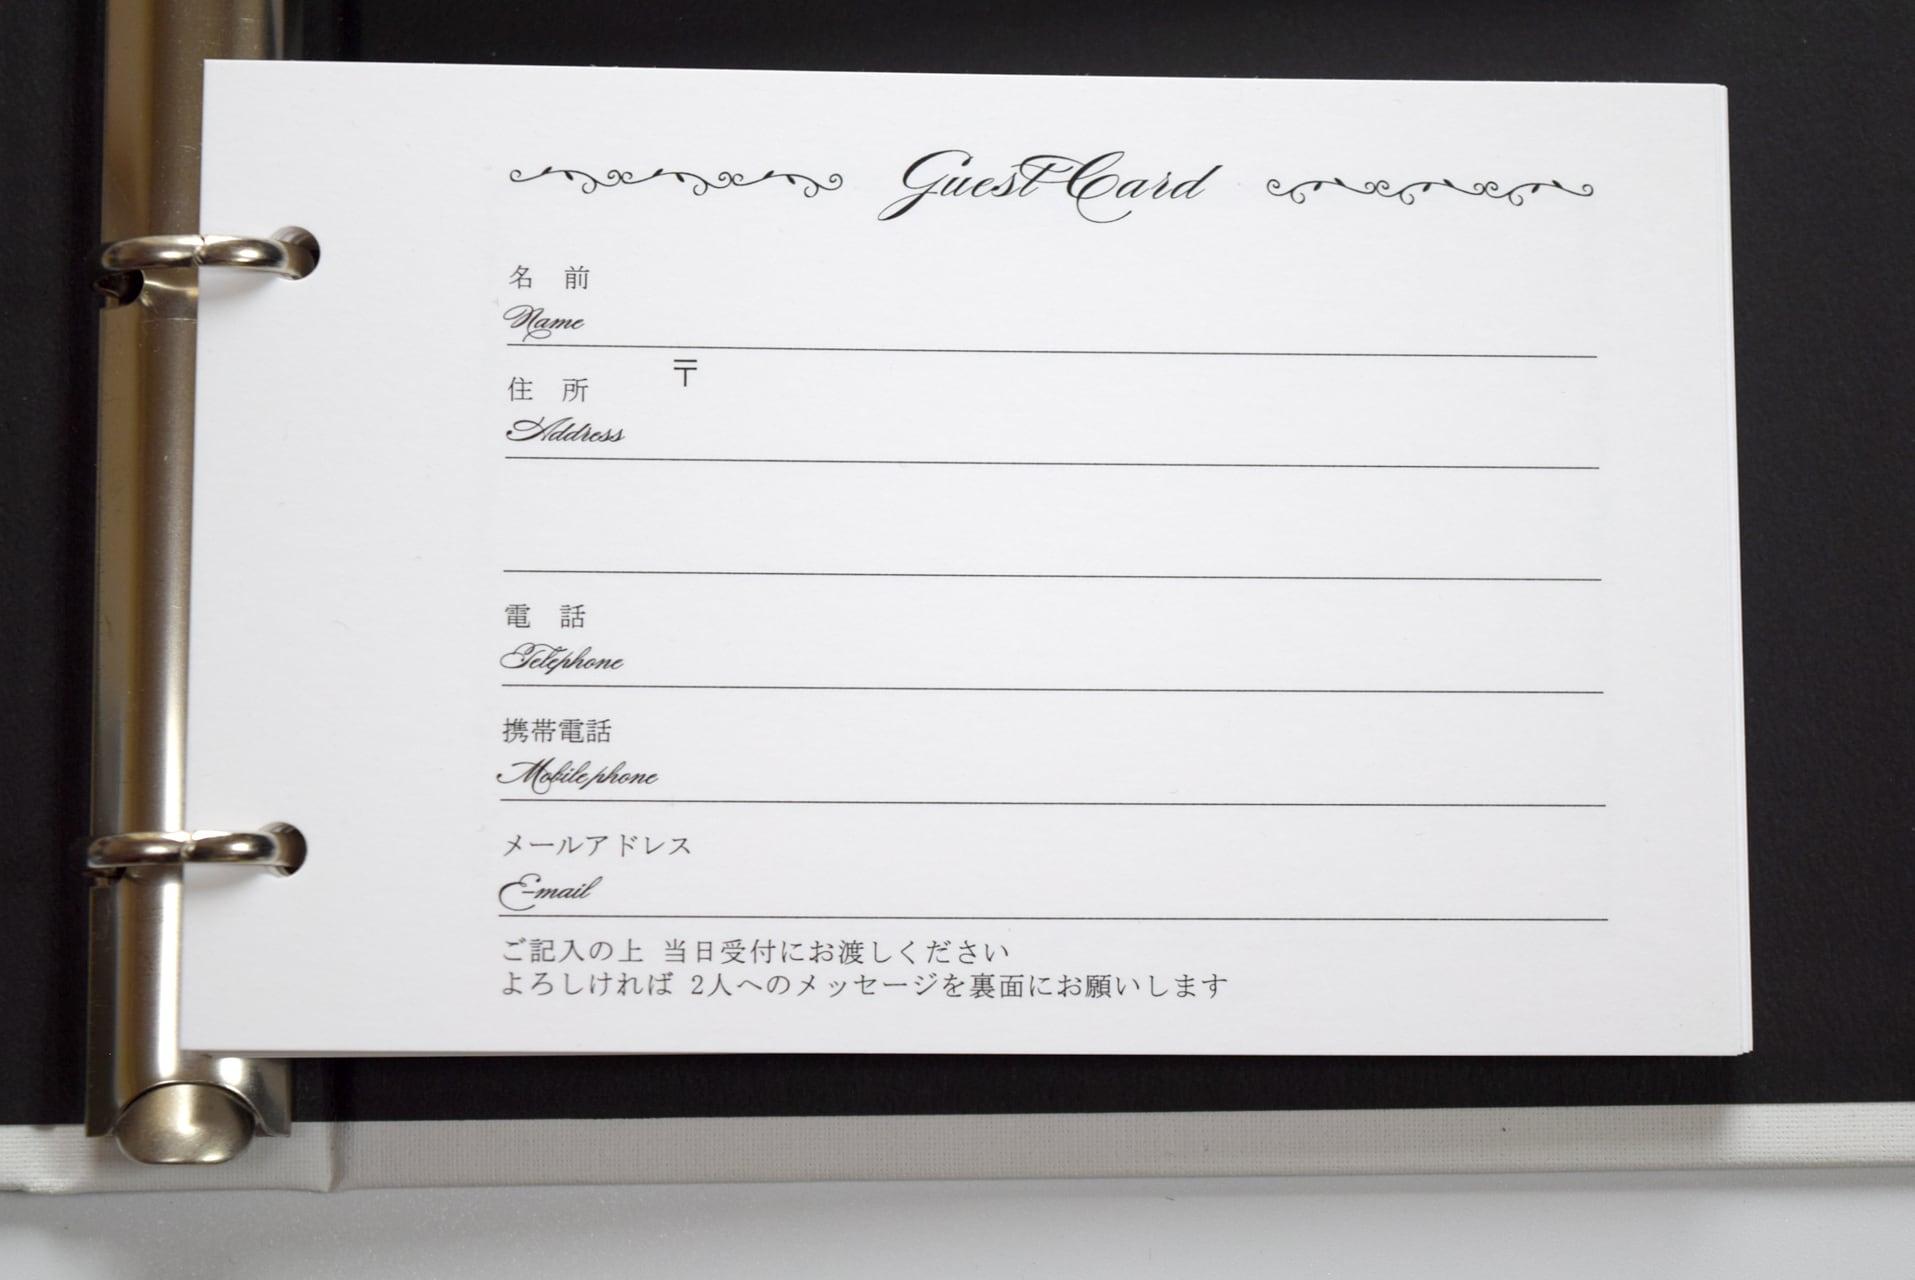 Guest Card
名 前
Name
〒
住 所
Address
電 話
Telephone
携帯電話
Mobilephone
メールアドレス
E-mail
ご記入の上 当日受付にお渡しください
よろしければ 2人へのメッセージを裏面にお願いします